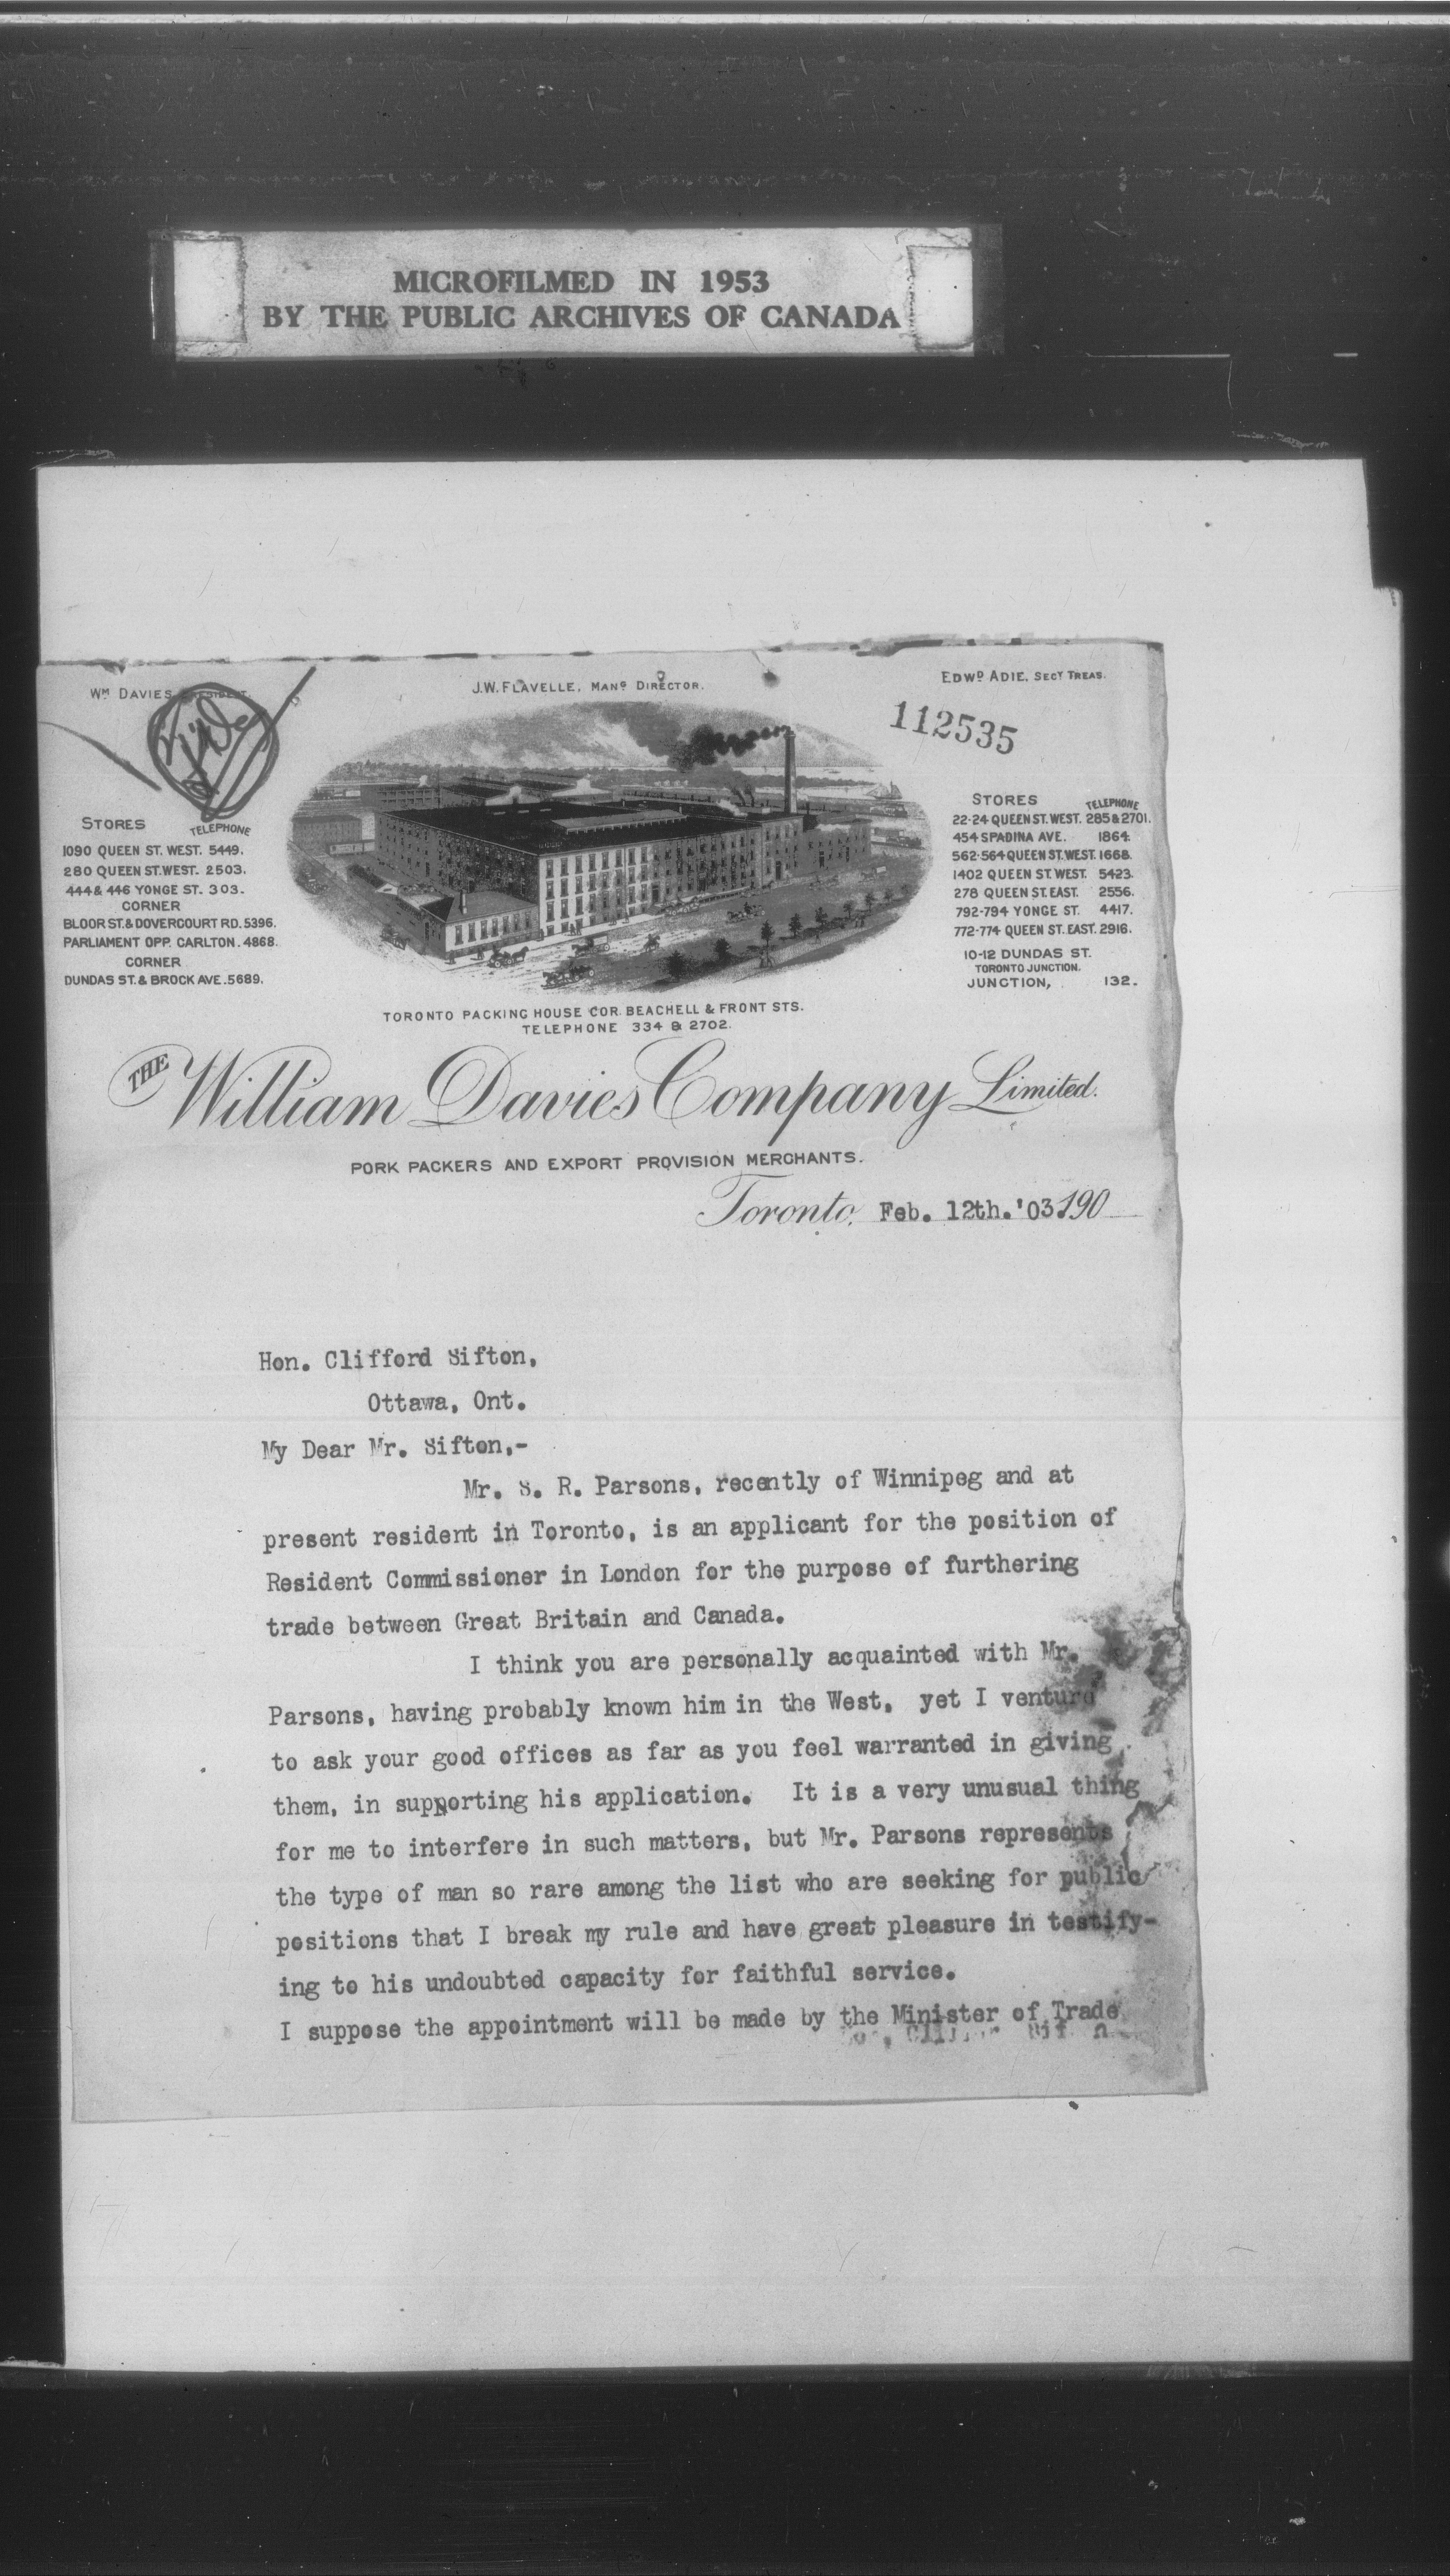 MICROFILMED IN 1953
BY THE PUBLIC ARCHIVES OF CANADA
WM DAVIES PRESIDENT.
J.W. FLAVELLE, MANG DIRECTOR.
EDWD ADIE, SECY TREAS.
File
112535
STORES TELEPHONE
1090 QUEEN ST. WEST. 5449.
280 QUEEN ST. WEST. 2503.
444 & 446 YONGE ST. 303.
CORNER
BLOOR ST. & DOVERCOURT RD. 5396.
PARLIAMENT OPP. CARLTON. 4868.
CORNER
DUNDAS ST. & BROCK AVE. 5689.
STORES TELEPHONE
22-24 QUEEN ST. WEST. 285 & 2701.
454 SPADINA AVE. 1864.
562-564 QUEEN ST. WEST. 1668.
1402 QUEEN ST. WEST. 5423.
278 QUEEN ST. EAST. 2556.
792-794 YONGE ST. 4417.
772-774 QUEEN ST. EAST. 2916.
10-12 DUNDAS ST.
TORONTO JUNCTION.
JUNCTION, 132.
TORONTO PACKING HOUSE COR. BEACHELL & FRONT STS.
TELEPHONE 334 & 2702.
THE William Davies Company Limited.
PORK PACKERS AND EXPORT PROVISION MERCHANTS.
Toronto, Feb. 12th. '03. 190
Hon. Clifford Sifton,
Ottawa, Ont.
My Dear Mr. Sifton,-
Mr. S. R. Parsons, recently of Winnipeg and at
present resident in Toronto, is an applicant for the position of
Resident Commissioner in London for the purpose of furthering
trade between Great Britain and Canada.
I think you are personally acquainted with Mr.
Parsons, having probably known him in the West, yet I venture
to ask your good offices as far as you feel warranted in giving
them, in supporting his application. It is a very unusual thing
for me to interfere in such matters, but Mr. Parsons represents
the type of man so rare among the list who are seeking for public
positions that I break my rule and have great pleasure in testify-
ing to his undoubted capacity for faithful service.
I suppose the appointment will be made by the Minister of Trade